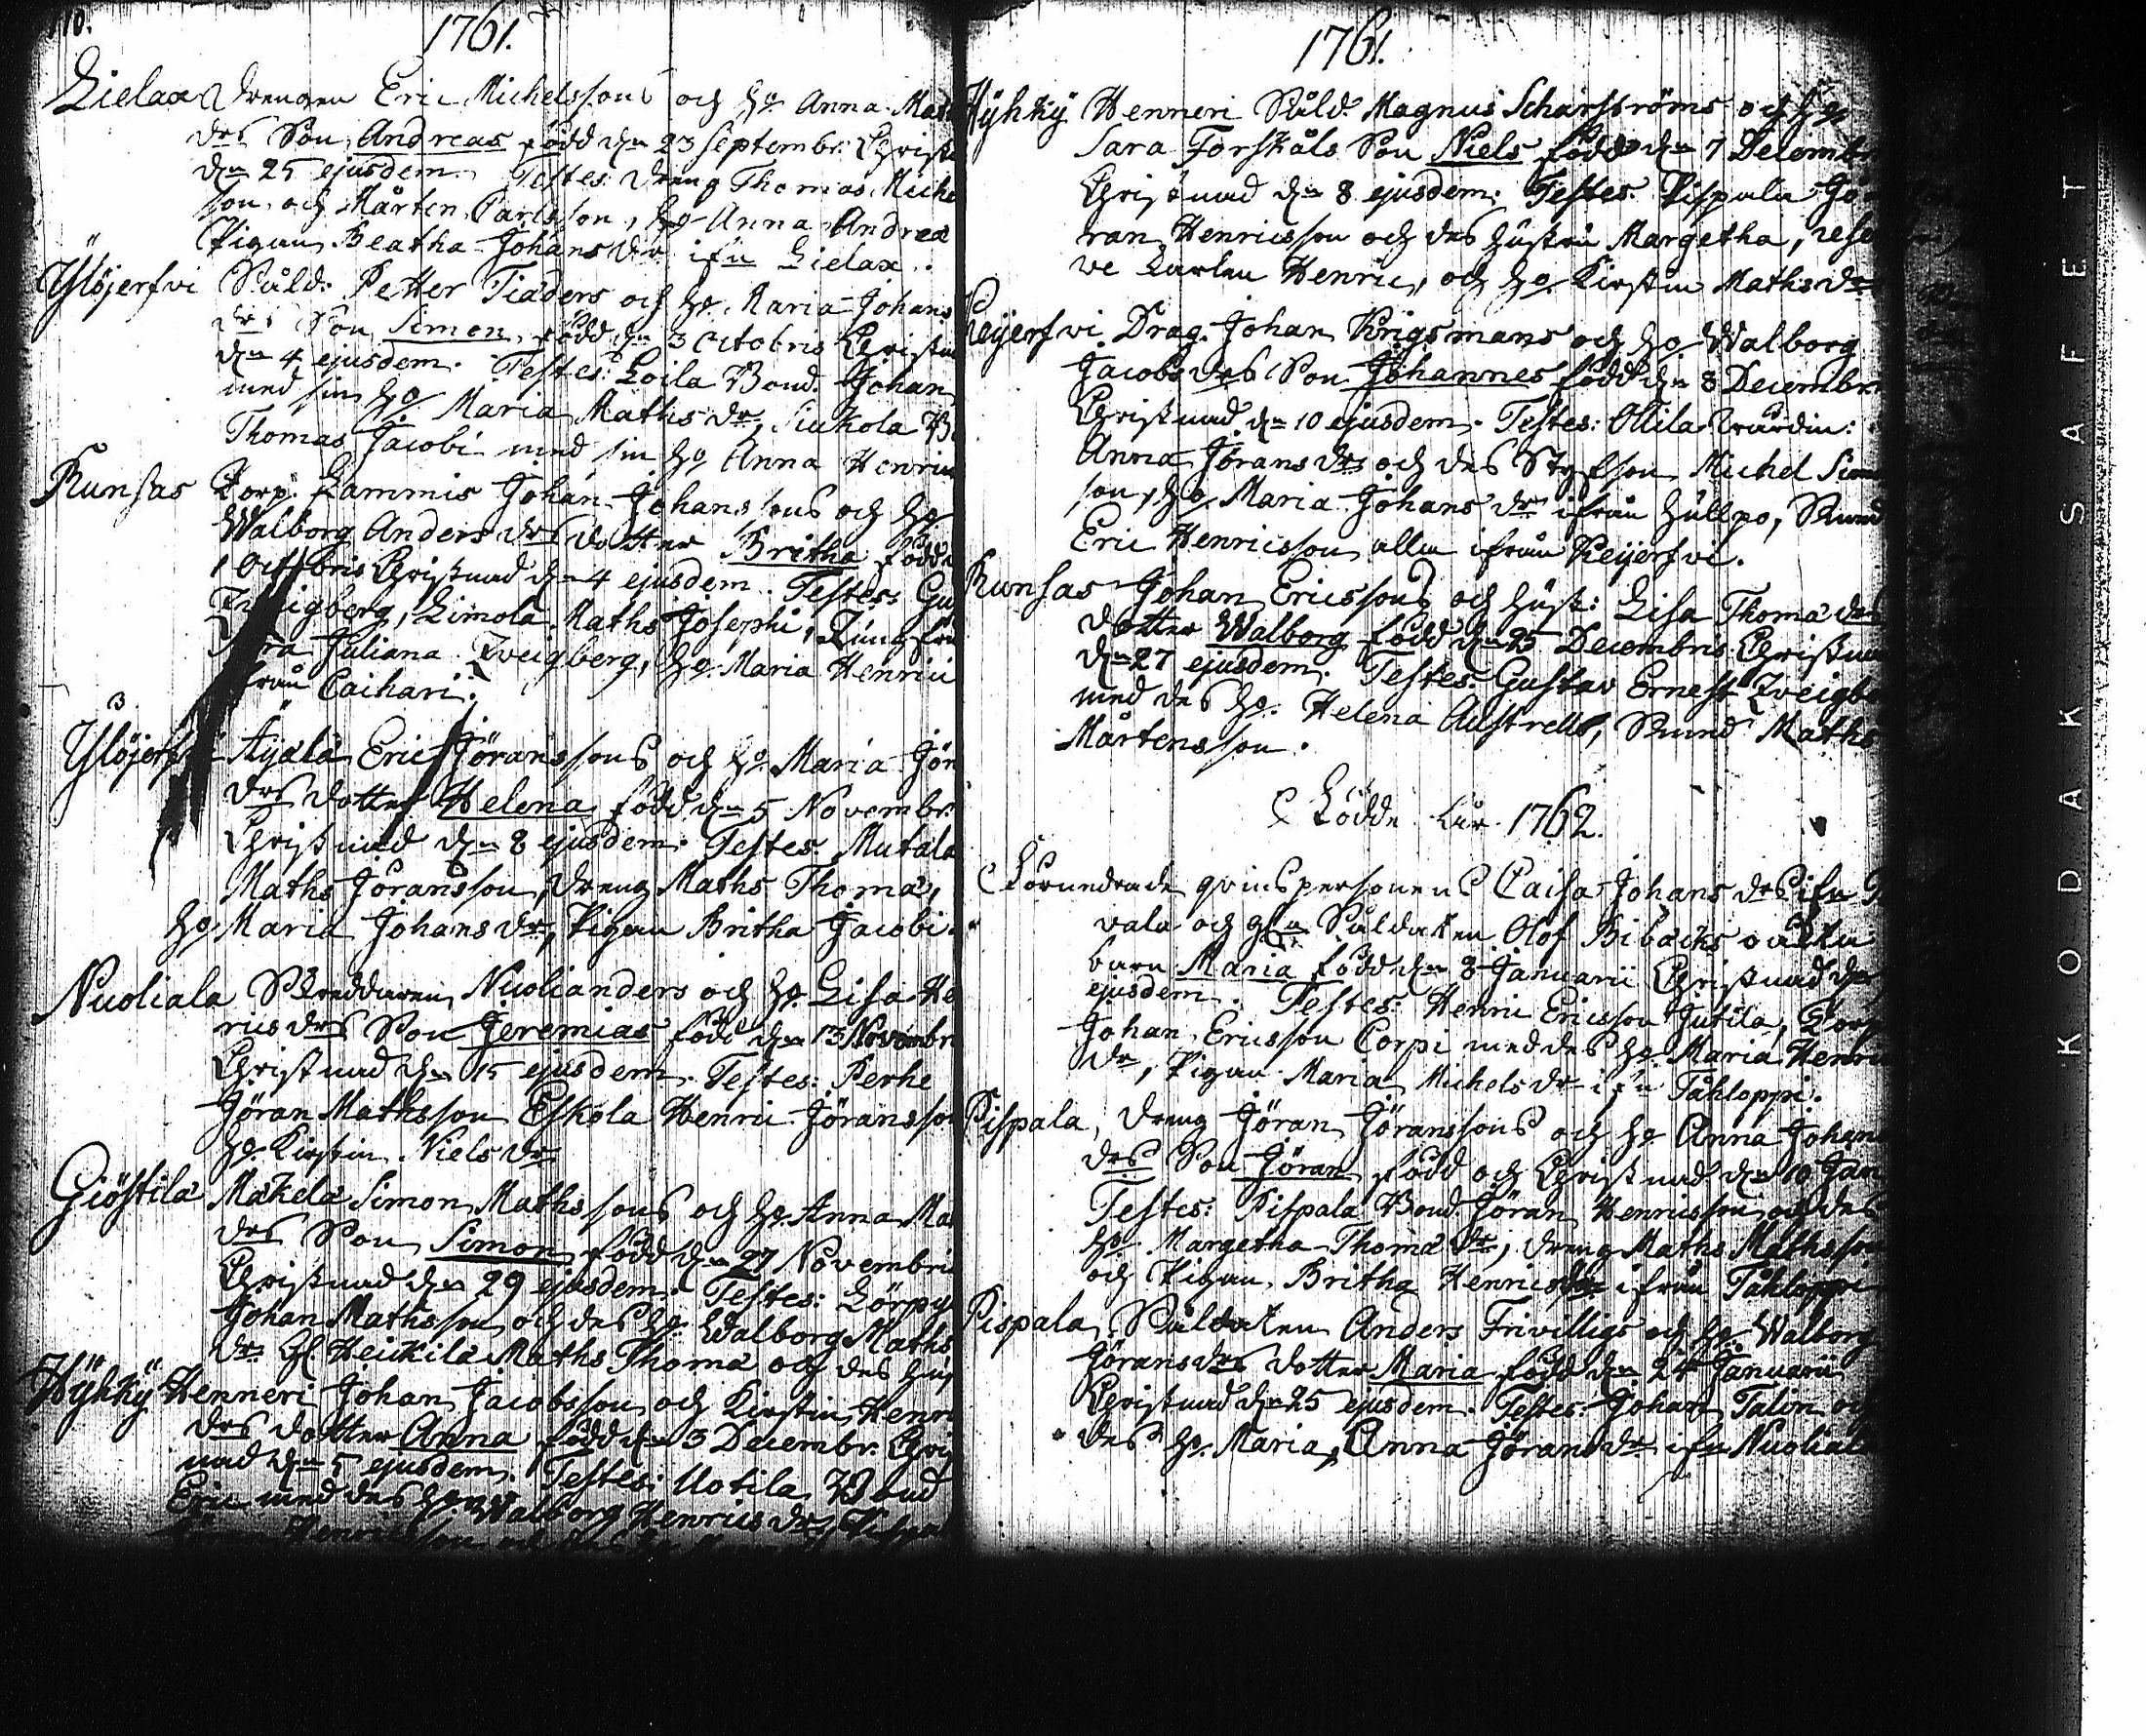 110.
1761.
Lielax Drengen Eric Michelssons och h:o Anna Mat
drs Son Andreas född d:n 23 Septembr: Christ
d:n 25 ejusdem. Testes: Dreng Thomas Miche
son och Mårten Carlsson, h:o Anna Andreæ
Pigan Beatha Johans dr ifn Lielax.
Ylöjerfvi Såld: Petter Tiäders och h:o Maria Johans
drs Son Simon, född d:n 3 Octobris Christna
d:n 4 ejusdem. Testes: Loila Bond. Johan
med sin h:o Maria Maths dr, Siukola B
Thomas Jacobi med sin h:o Anna Henrici
Runsas Torp: Lammis Johan Johanssons och h:o
Walborg Anders drs dotter Britha född
1 Octobris Christnad d:n 4 ejusdem. Testes: Gu
Zveigberg, Limola Maths Josephi, Jungfru
Juliana Zveigberg, h:o Maria Henrici
från Caihari.
Ylöjerfvi Äyälä Eric Jöranssons och h:o Maria Jör
drs dotter Helena född d:n 5 Novembr:
Christnad d:n 8 ejusdem. Testes: Mutala
Maths Jöransson, dreng Maths Thomæ,
h:o Maria Johans dr, Pigan Britha Jacobi
Nuoliala Skreddaren Nuolianders och h:o Lisa He
rics drs Son Jeremias född d:n 13 Novembr
Christnad d:n 15 ejusdem. Testes: Perhe
Jöran Mathsson Eskola Henric Jöransson
h:o Kirstin Niels dr
Giöstilä Mäkelä Simon Mathssons och h:o Anna Ma
drs Son Simon född d:n 27 Novembris
Christnad d:n 29 ejusdem. Testes: Lörpys
Johan Mathsson och des h:o Walborg Maths
dr Heikilä Maths Thomæ och des hus
Hyhky Henneri Johan Jacobsson och Kirstin Henri
drs dotter Anna född d:n 3 Decembr: Chris
nad d:n 5 ejusdem. Testes: Uotila Bond
Eric med des h:o Walborg Henrics dr, Pispa
1761.
Hyhky Henneri Såld: Magnus Scharströms och h:o
Sara Forskåls Son Niels född d:n 7 Decembr
Christnad d:n 8 ejusdem: Testes: Pispala Jö
ran Henricsson och des hustru Margetha, rese
ve Karlen Henric, och h:o Kirstin Maths dr
Keijerfvi. Drag. Johan Krigsmans och h:o Walborg
Jacobs drs Son Johannes född d:n 8 Decembr.
Christnad d:n 10 ejusdem. Testes: Ollila Wärdin:
Anna Jörans dr och des Styfson Michel Sim
son, h:o Maria Johans dr ifrån Hüllpo,
Eric Henricsson alla ifrån Keijerfvi.
Runsas Johan Ericssons och hust: Lisa Thomæ drs
dotter Walborg född d:n 25 Decembris Christnad
d:n 27 ejusdem. Testes: Gustav Ernest Zveigbe
med des h:o Helena Austrell, Maths
Mårtensson.
Födde åhr 1762.
qvinspersonens Caisa Johans drs ifn
vala och Såldaten Olof Bibacks oäkta
barn Maria född d:n 8 Januarii Christnad d:n
ejusdem. Testes: Henric Ericsson Jutila, Torp
Johan Ericsson Corpi med des h:o Maria Henric
dr, Pigan Maria Michels dr ifn Tahloppi.
Pispala, Dreng Jöran Jöranssons och h:o Anna Johan
drs Son Jöran född och Christnad d:n 10 Jan
Testes: Pispala Bond. Jöran Henricsson och des
h:o Margetha Thomæ dr, dreng Maths Mathsson
och Pigan Britha Henrics dr ifrån Tahloppi
Pispala. Såldaten Anders Frivilligs och h:o Walborg
Jörans drs dotter Maria född d:n 24 Januarii
Christnad d:n 25 ejusdem. Testes: Johan Talin och
des h:o Maria, Anna Jörans dr ifn Nuoliala
KODAK SAFETY